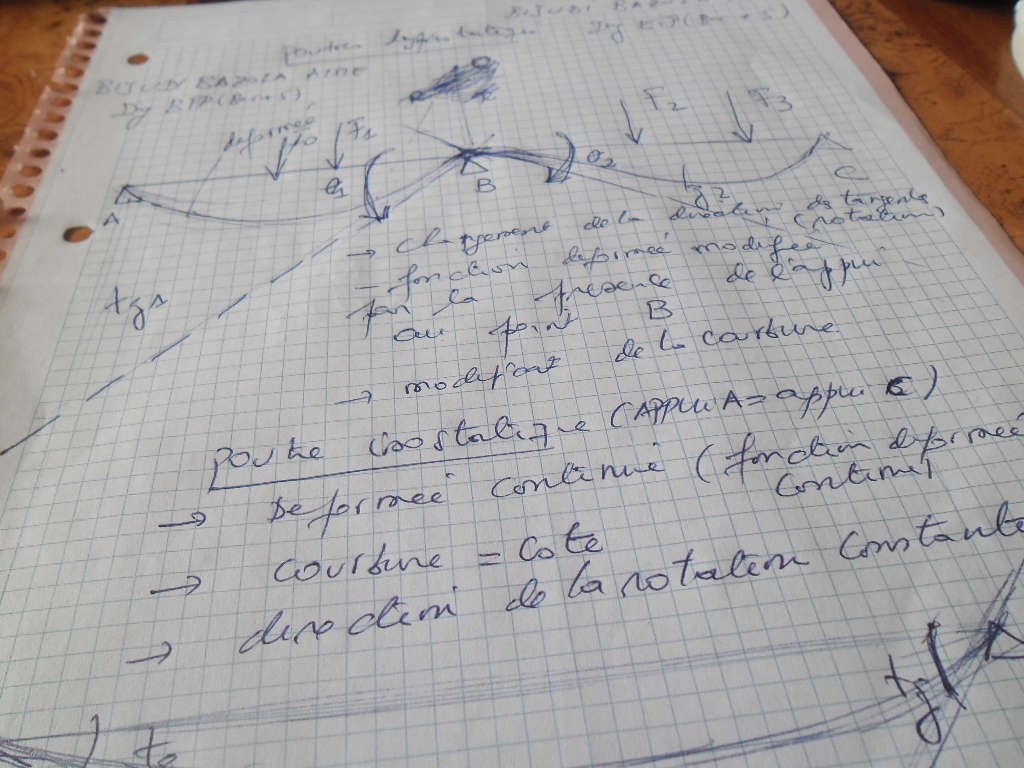 BIJUDI BAZOLA
Poutre hyperstatique Ig BTP(Bac+5)
BIJUDI BAZOLA AIME
Ig BTP(Bac+5)
deformeé
F1
F2
F3
θ1
θ2
A
B
C
tg2
tg1
→ changement de la direction de tangente
(rotation)
- fonction deformeé modifieé
par la presence de l'appui
au point B
→ modificat de la courbure
Poutre isostatique (APPUI A = appui C)
→ Deformeé continue (fonction deformeé
continue)
→ courbure = cste
→ direction de la rotation constante
tg